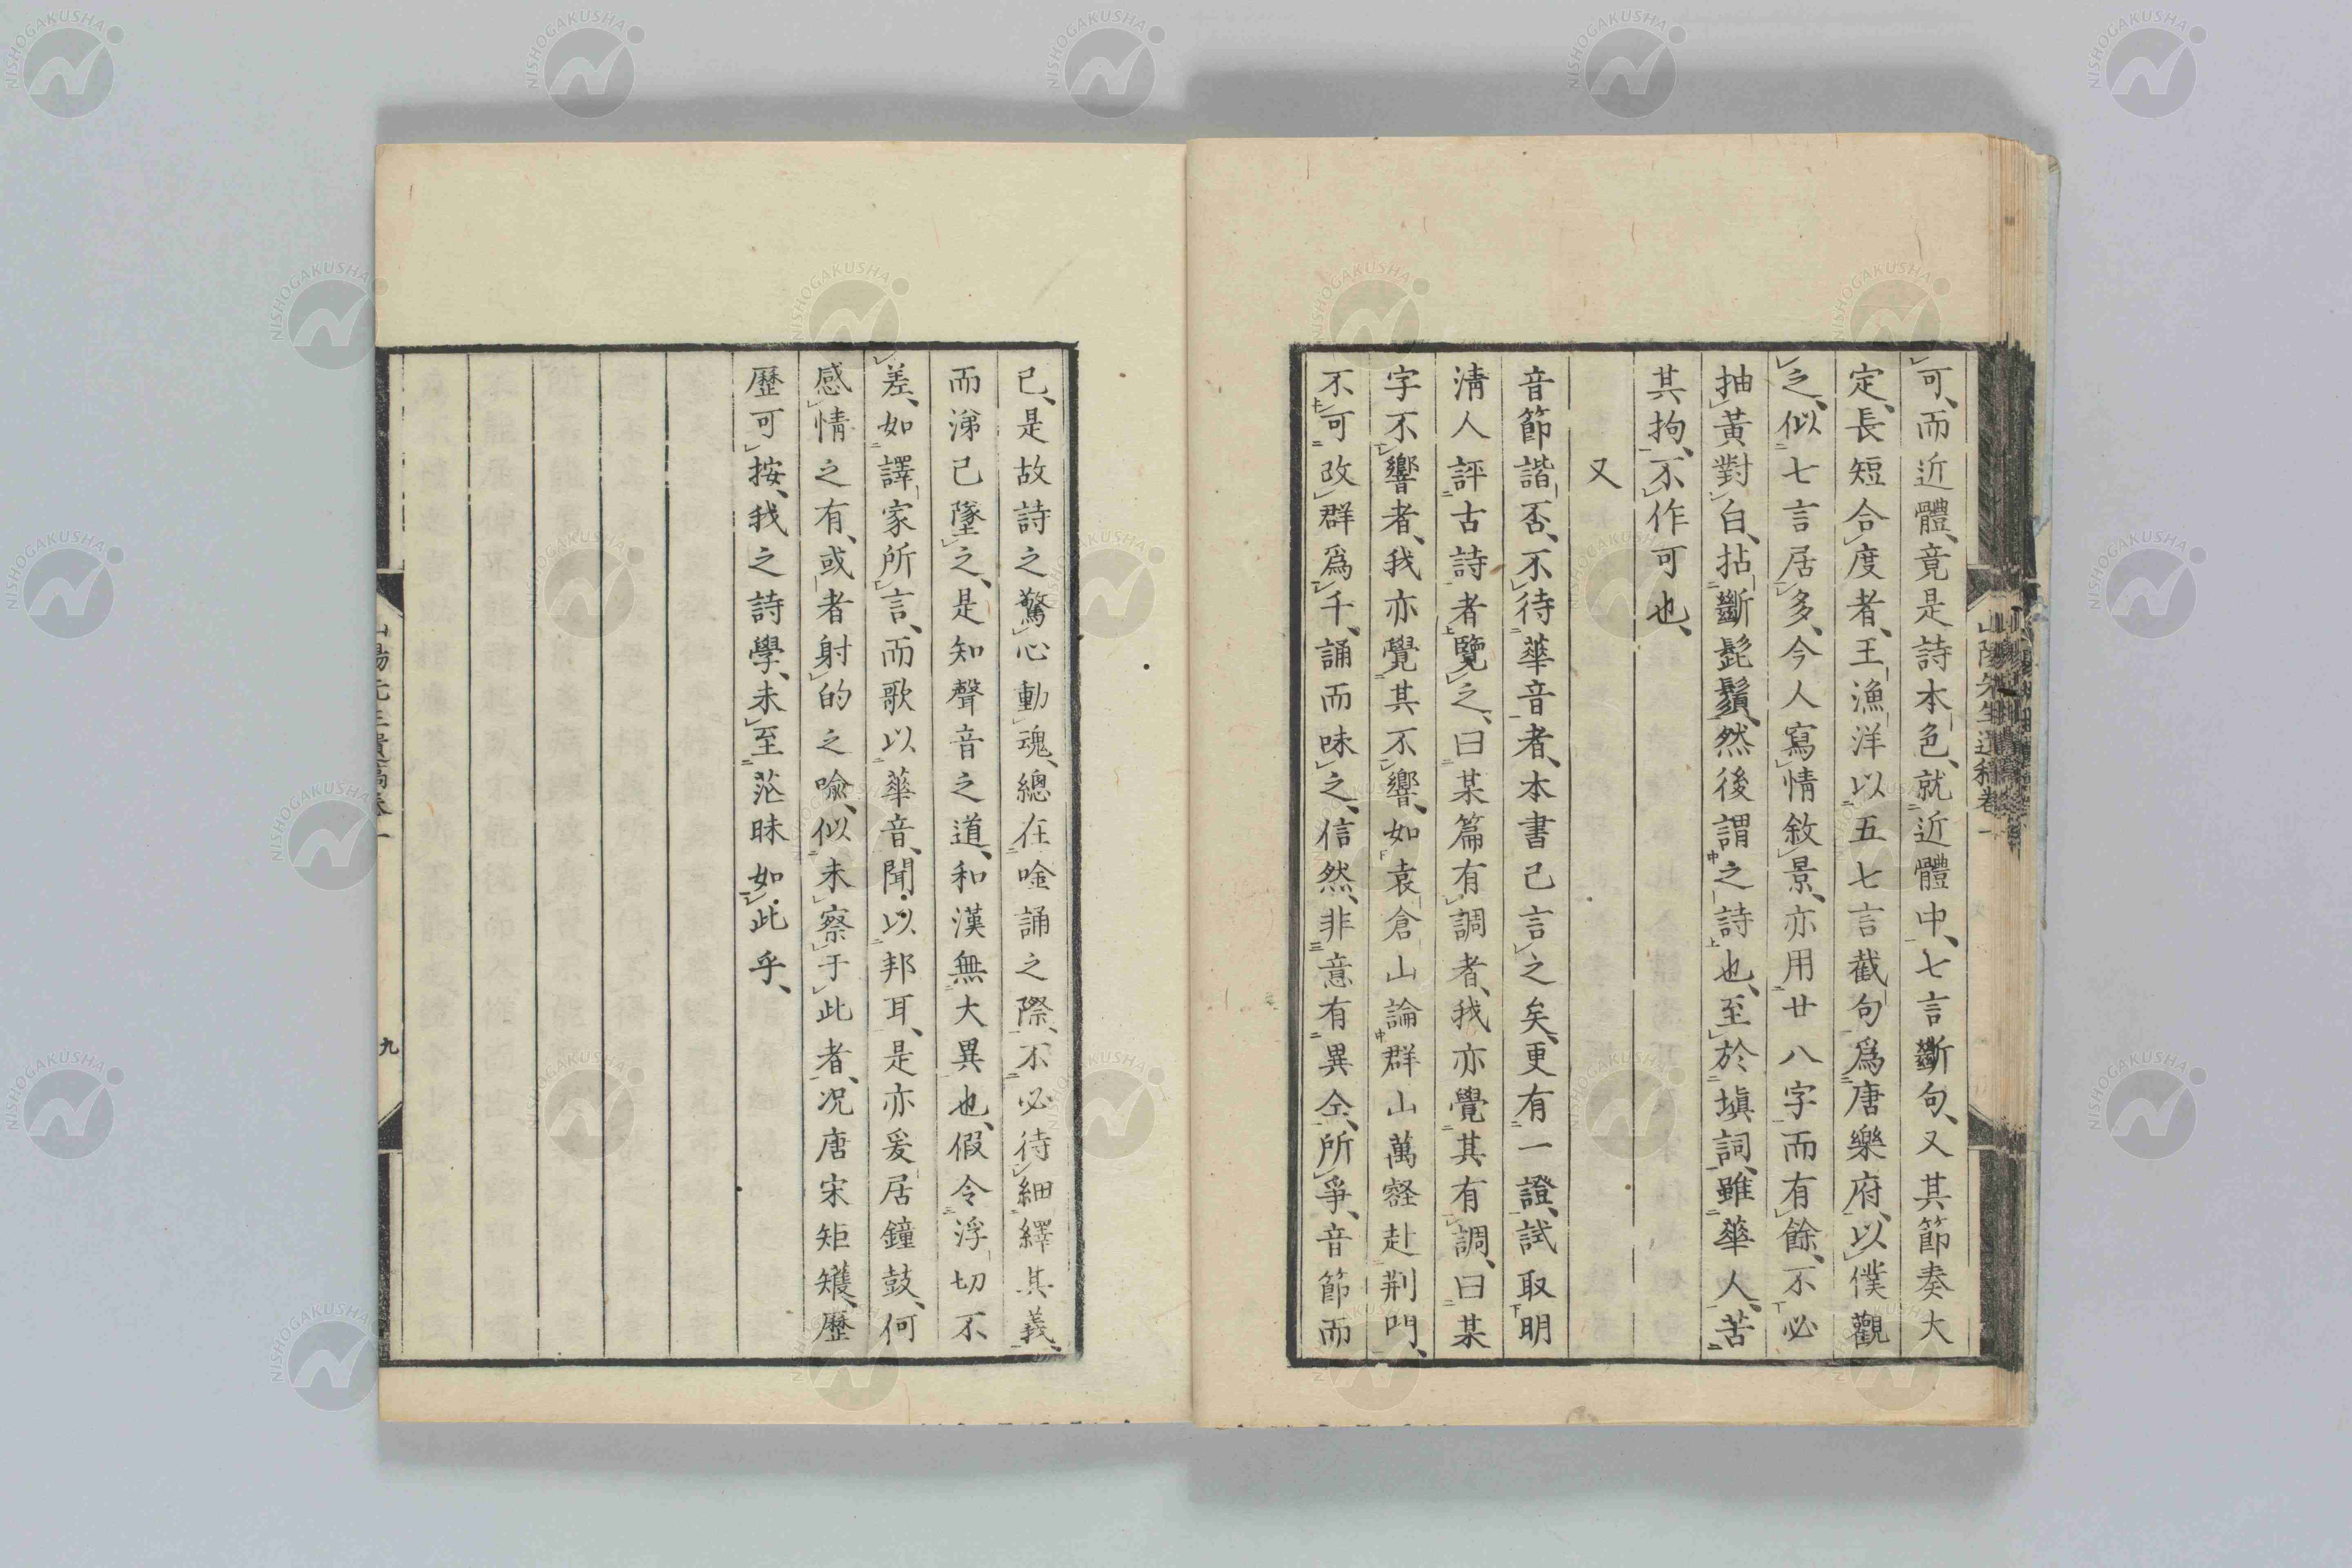 可、而近體、竟是詩本色、就近體中、七言斷句、又其節奏大
定、長短合度者、王漁洋以五七言截句爲唐樂府、以僕觀
之、似七言居多、今人寫情敘景、亦用廿八字而有餘、不必
抽黃對白、拈斷髭鬚、然後謂之詩也、至於塡詞、雖華人、苦
其拘、不作可也、
又
音節諧否、不待華音者、本書已言之矣、更有一證、試取明
淸人評古詩者覽之、曰某篇有調者、我亦覺其有調、曰某
字不響者、我亦覺其不響、如袁倉山論群山萬壑赴荆門、
不可改群爲千、誦而味之、信然、非意有異仝、所爭、音節而
已、是故詩之驚心動魂、總在唫誦之際、不必待細繹其義、
而涕已墜之、是知聲音之道、和漢無大異也、假令浮切不
差、如譯家所言、而歌以華音、聞以邦耳、是亦爰居鐘鼓、何
感情之有、或者射的之喩、似未察于此者、况唐宋矩矱、歷
歷可按、我之詩學、未至茫昧如此乎、
山陽先生遺稿卷一
九
NISHOGAKUSHA